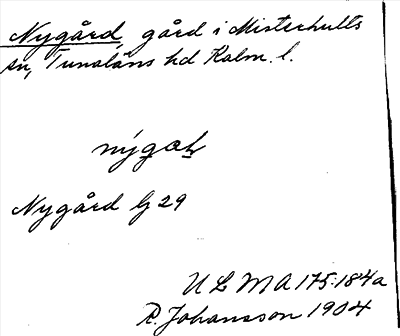 Nygård, gård i Misterhults
sn, Tunaläns hd Kalm. l.
Nygård
29
ULMA 175:184a
R. Johansson 1904